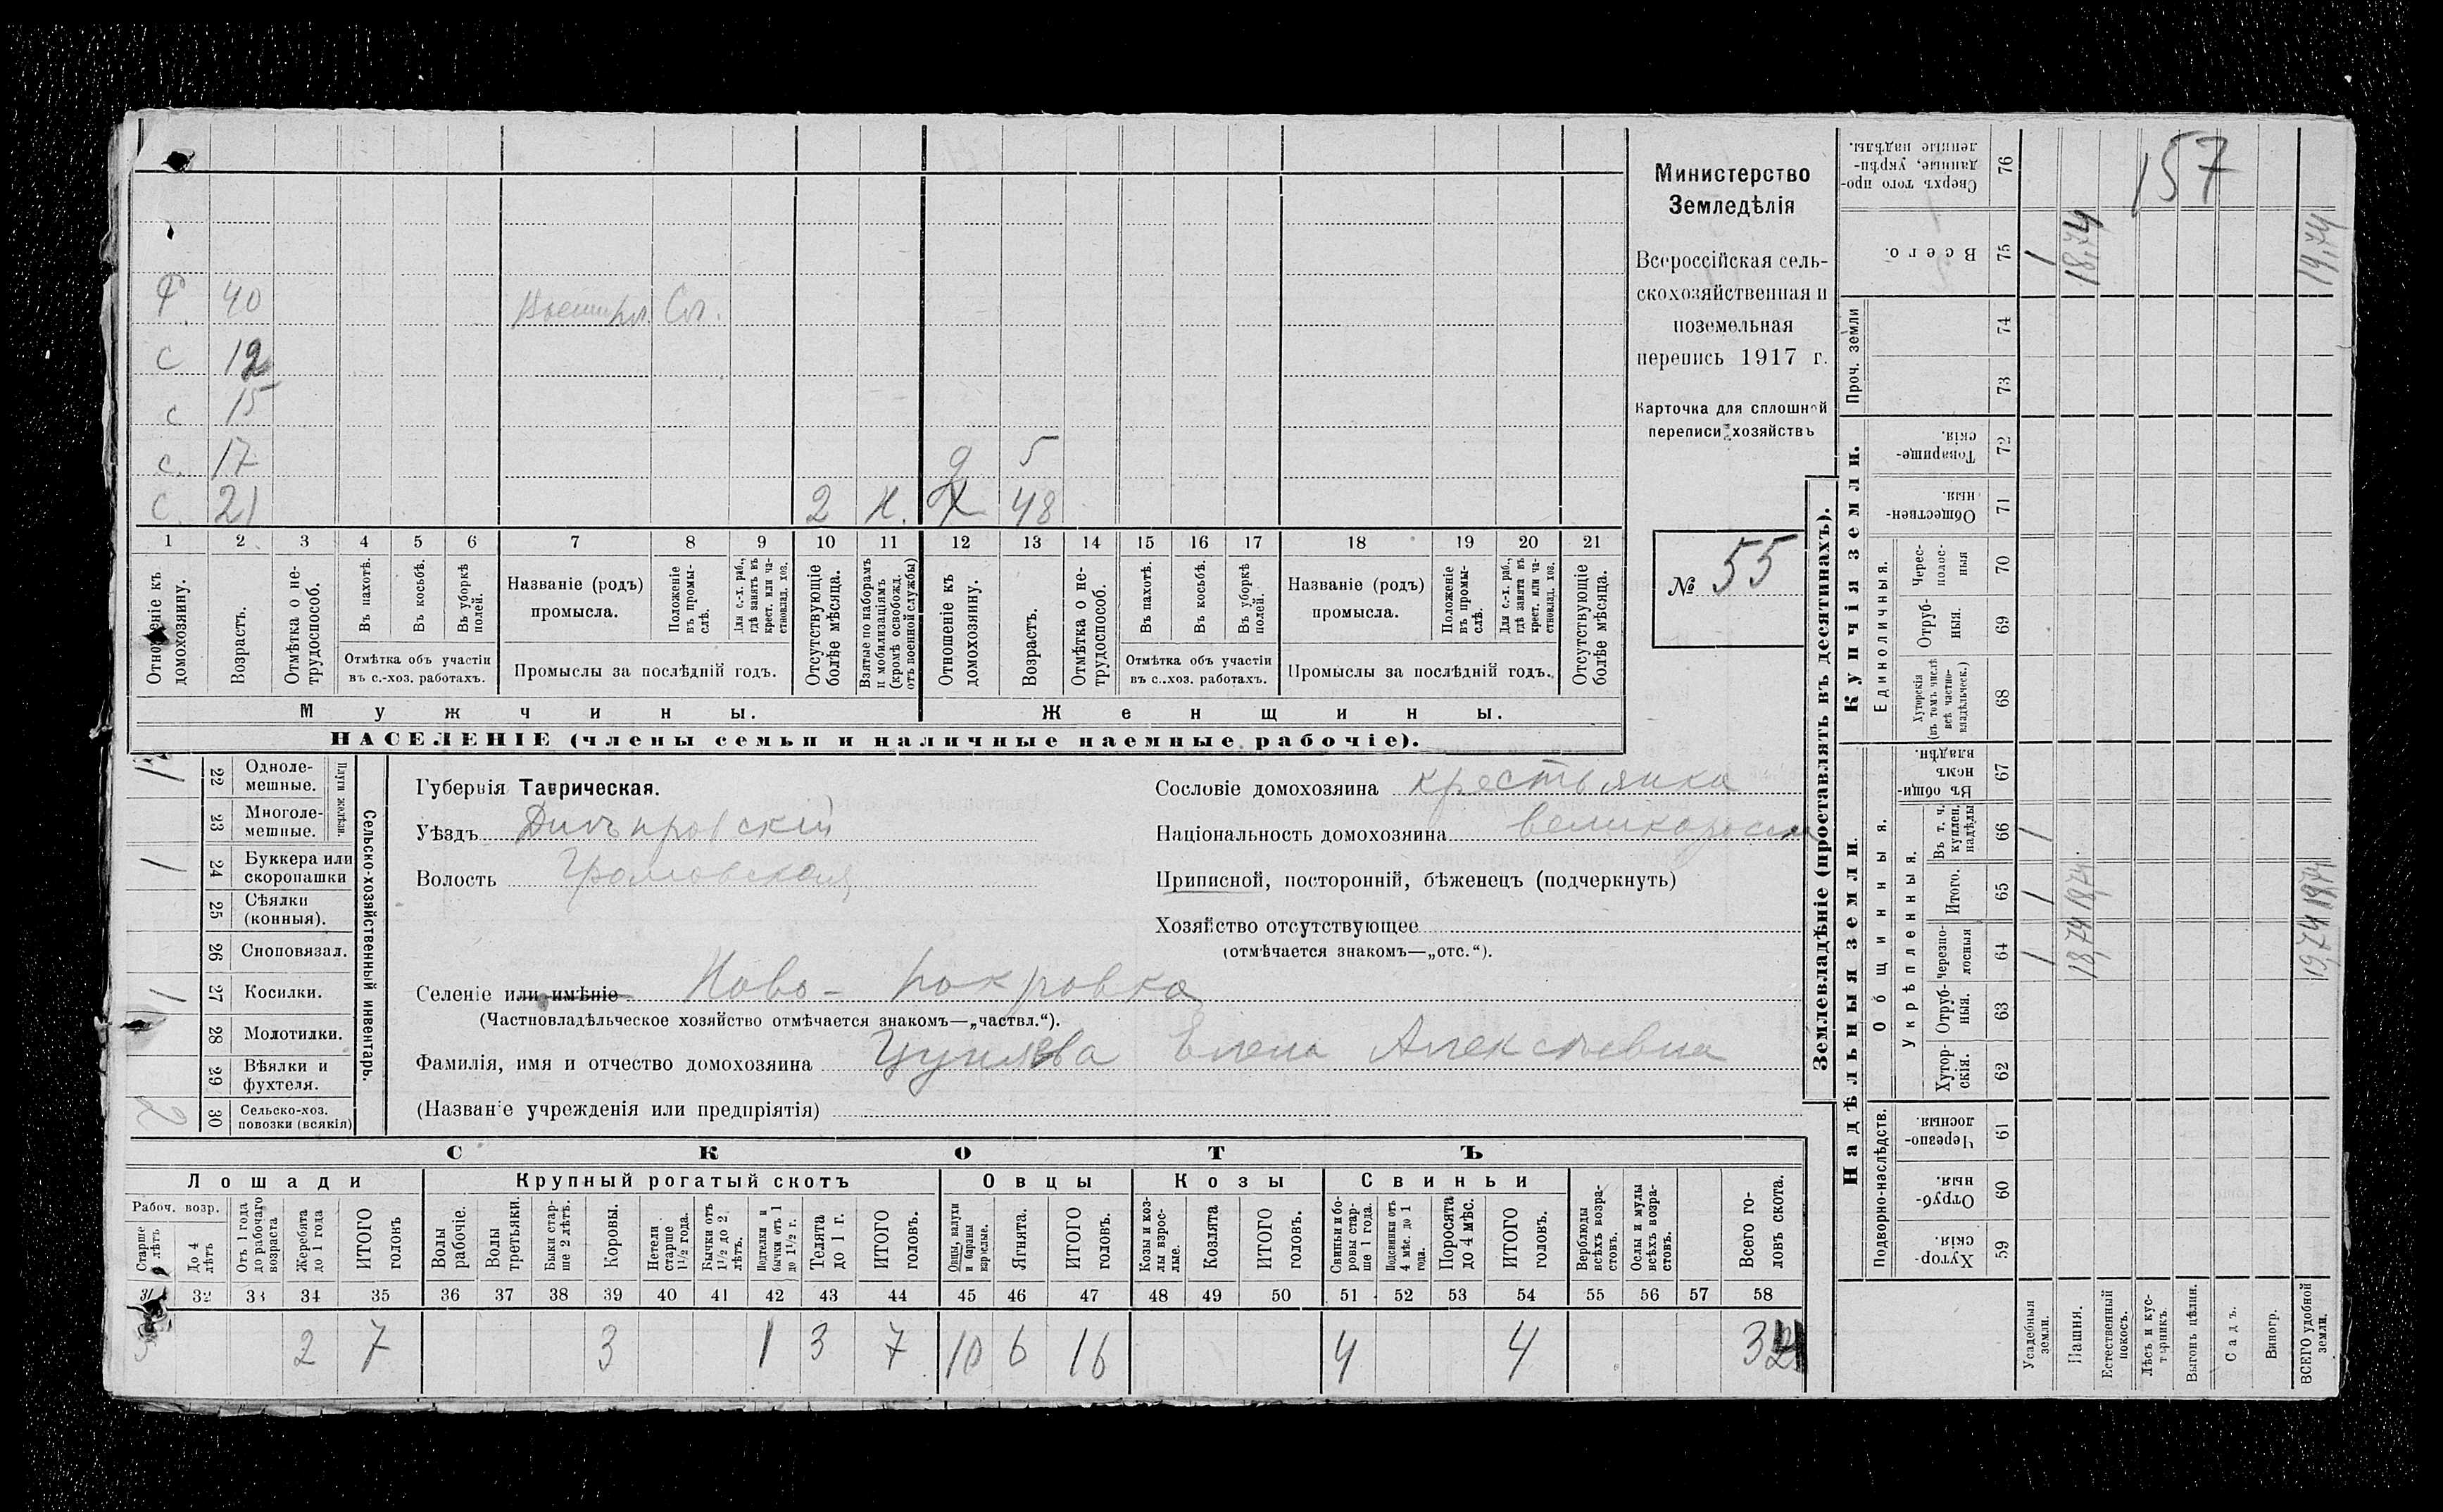 157
Министерство
Земледѣлія
Всероссійская сель-
скохозяйственная и
поземельная
перепись 1917 г.
Карточка для сплошной
переписи хозяйствъ
№ 55
Ф 40 Сл.
с 12
с 15
с. 17 д 5
с. 21 2 48
1 2 3 4 5 6 7 8 9 10 11 12 13 14 15 16 17 18 19 20 21
Отношеніе къ домохозяину.
Возрастъ.
Отмѣтка о не-трудоспособ.
Въ пахотѣ.
Въ косьбѣ.
Въ уборкѣ полей.
Отмѣтка объ участіи
въ с.-хоз. работахъ.
Названіе (родъ)
промысла.
Положеніе въ промы-слѣ.
Для с.-х. раб., гдѣ занятъ въ крест. или ча-стновлад. хоз.
Промыслы за послѣдній годъ.
Отсутствующіе болѣе мѣсяца.
Взятые по наборамъ и мобилизаціямъ (кромѣ освобожд. отъ военной службы)
Отношеніе къ домохозяину.
Возрастъ.
Отмѣтка о не-трудоспособ.
Въ пахотѣ.
Въ косьбѣ.
Въ уборкѣ полей.
Отмѣтка объ участіи
въ с.-хоз. работахъ.
Названіе (родъ)
промысла.
Положеніе въ промы-слѣ.
Для с.-х. раб., гдѣ занята въ крест. или ча-стновлад. хоз.
Промыслы за послѣдній годъ.
Отсутствующіе болѣе мѣсяца.
Мужчины.
Женщины.
НАСЕЛЕНІЕ (члены семьи и наличные наемные рабочіе).
Сельско-хозяйственный инвентарь.
Плуги желѣзн.
22 Одноле-мешные.
23 Многоле-мешные.
1 24 Буккера или скоропашки
25 Сѣялки (конныя).
26 Сноповязал.
1 27 Косилки.
28 Молотилки.
29 Вѣялки и фухтеля.
2 30 Сельско-хоз. повозки (всякія)
Губернія Таврическая.
Уѣздъ Днѣпровскій
Волость Громовская
Селеніе или имѣніе Ново-Покровка
(Частновладѣльческое хозяйство отмѣчается знакомъ—„частвл.“).
Фамилія, имя и отчество домохозяина Цуцлева Елена Алексѣевна
(Названіе учрежденія или предпріятія)
Сословіе домохозяина крестьянка
Національность домохозяина
Приписной, посторонній, бѣженецъ (подчеркнуть)
Хозяйство отсутствующее
(отмѣчается знакомъ—„отс.“).
СКОТЪ
Лошади
Крупный рогатый скотъ
Овцы
Козы
Свиньи
Рабоч. возр.
Старше 4 лѣтъ
До 4 лѣтъ
Отъ 1 года до рабочаго возраста
Жеребята до 1 года
ИТОГО головъ
Волы рабочіе.
Волы третьяки.
Быки стар-ше 2 лѣтъ.
Коровы.
Нетели старше 1½ года.
Бычки отъ 1½ до 2 лѣтъ.
Подтелки и бычки отъ 1 до 1½ г.
Телята до 1 г.
ИТОГО головъ.
Овцы, валухи и бараны взрослые.
Ягнята.
ИТОГО головъ.
Козы и коз-лы взрос-лые.
Козлята
ИТОГО головъ.
Свиньи и бо-ровы стар-ше 1 года.
Подсвинки отъ 4 мѣс. до 1 года.
Поросята до 4 мѣс.
ИТОГО головъ.
Верблюды всѣхъ возра-стовъ.
Ослы и мулы всѣхъ возра-стовъ.
Всего го-ловъ скота.
31 32 33 34 35 36 37 38 39 40 41 42 43 44 45 46 47 48 49 50 51 52 53 54 55 56 57 58
2 7 3 1 3 7 10 6 16 4 4
Землевладѣніе (проставлять въ десятинахъ).
Надѣльныя земли.
Купчія земли.
Проч. земли
Подворно-наслѣдств.
Общинныя.
Укрѣпленныя.
Единоличныя.
Хутор-скія. 59
Отруб-ныя. 60
Черезпо-лосныя 61
Хутор-скія. 62
Отруб-ныя. 63
Черезпо-лосныя 64
Итого. 65
Въ т. ч. куплен. надѣлы 66
Въ общи-номъ владѣн. 67
Хуторскія (въ томъ числѣ всѣ частно-владѣльческ.) 68
Отруб-ныя. 69
Черес-полос-ныя 70
Обществен-ныя. 71
Товарище-скія. 72
73
74
Всего. 75
Сверхъ того про-данные, укрѣп-ленные надѣлы. 76
Усадебныя земли. 1 1 1 1
Пашня. 18,74 18,74 18,74
Естественный покосъ.
Лѣсъ и кус-тарникъ.
Выгонъ цѣлин.
Садъ.
Виногр.
ВСЕГО удобной земли. 19,74 19,74 19,74